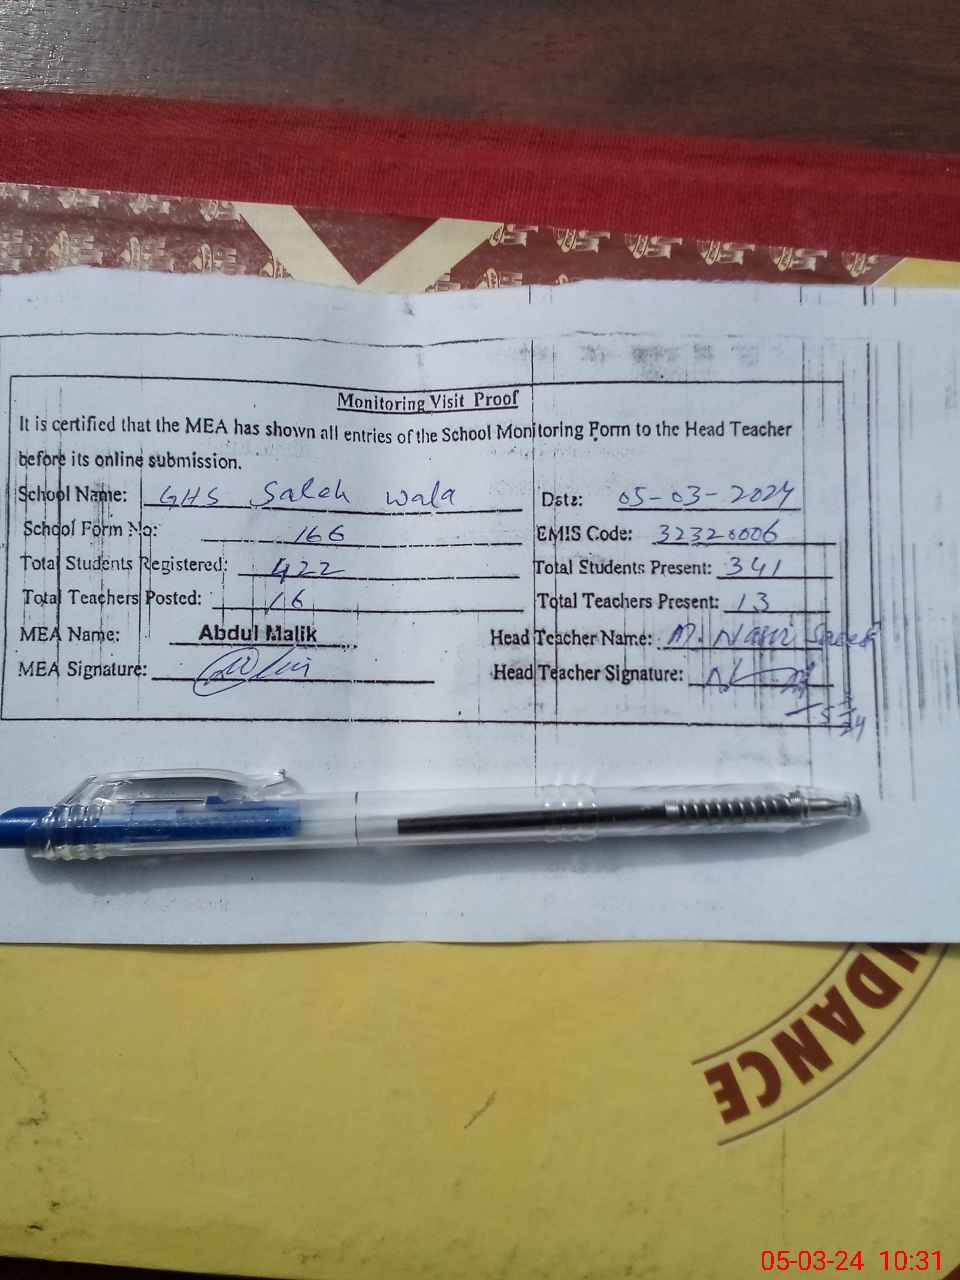 Monitoring Visit Proof
It is certified that the MEA has shown all entries of the School Monitoring Form to the Head Teacher
before its online submission.
School Name: GHS Saleh wala Date: 05-03-2024
School Form No: 166 EMIS Code: 32320006
Total Students Registered: 422 Total Students Present: 341
Total Teachers Posted: 16 Total Teachers Present: 13
MEA Name: Abdul Malik Head Teacher Name: M. Nasir Saeed
MEA Signature: Head Teacher Signature:
NDANCE
05-03-24 10:31